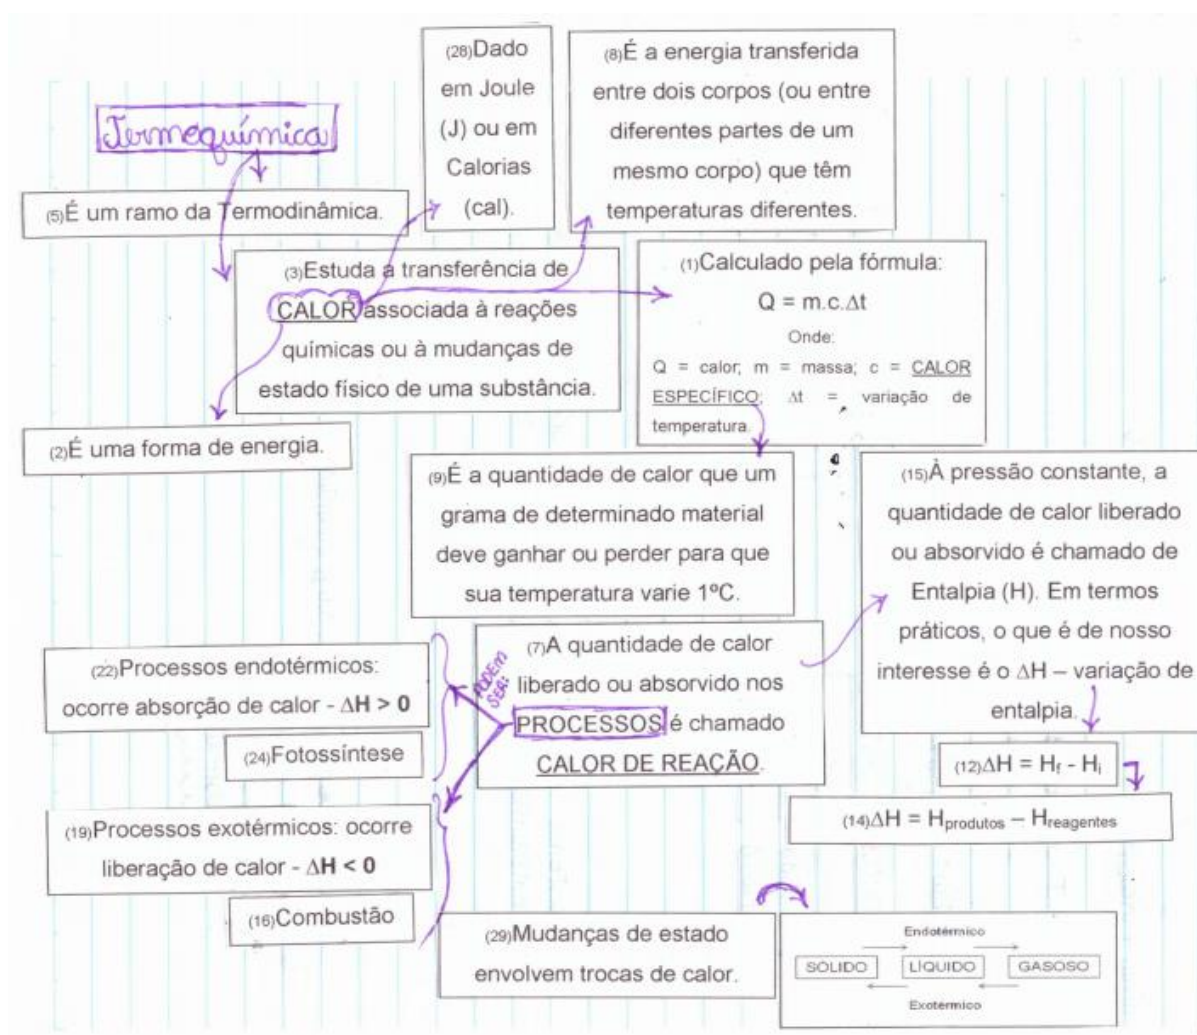 Termequímica
(28)Dado
em Joule
(J) ou em
Calorias
(cal).
(8)É a energia transferida
entre dois corpos (ou entre
diferentes partes de um
mesmo corpo) que têm
temperaturas diferentes.
(5)É um ramo da Termodinâmica.
(3)Estuda a transferência de
CALOR associada à reações
químicas ou à mudanças de
estado físico de uma substância.
(1)Calculado pela fórmula:
Q = m.c.Δt
Onde:
Q = calor; m = massa; c = CALOR
ESPECÍFICO; Δt = variação de
temperatura.
(2)É uma forma de energia.
(9)É a quantidade de calor que um
grama de determinado material
deve ganhar ou perder para que
sua temperatura varie 1ºC.
(15)À pressão constante, a
quantidade de calor liberado
ou absorvido é chamado de
Entalpia (H). Em termos
práticos, o que é de nosso
interesse é o ΔH – variação de
entalpia.
(7)A quantidade de calor
liberado ou absorvido nos
PROCESSOS é chamado
CALOR DE REAÇÃO.
PODEM
SER:
(22)Processos endotérmicos:
ocorre absorção de calor - ΔH > 0
(24)Fotossíntese
(12)ΔH = Hf - Hi
(14)ΔH = Hprodutos – Hreagentes
(19)Processos exotérmicos: ocorre
liberação de calor - ΔH < 0
(16)Combustão
(29)Mudanças de estado
envolvem trocas de calor.
Endotérmico
SÓLIDO LÍQUIDO GASOSO
Exotérmico